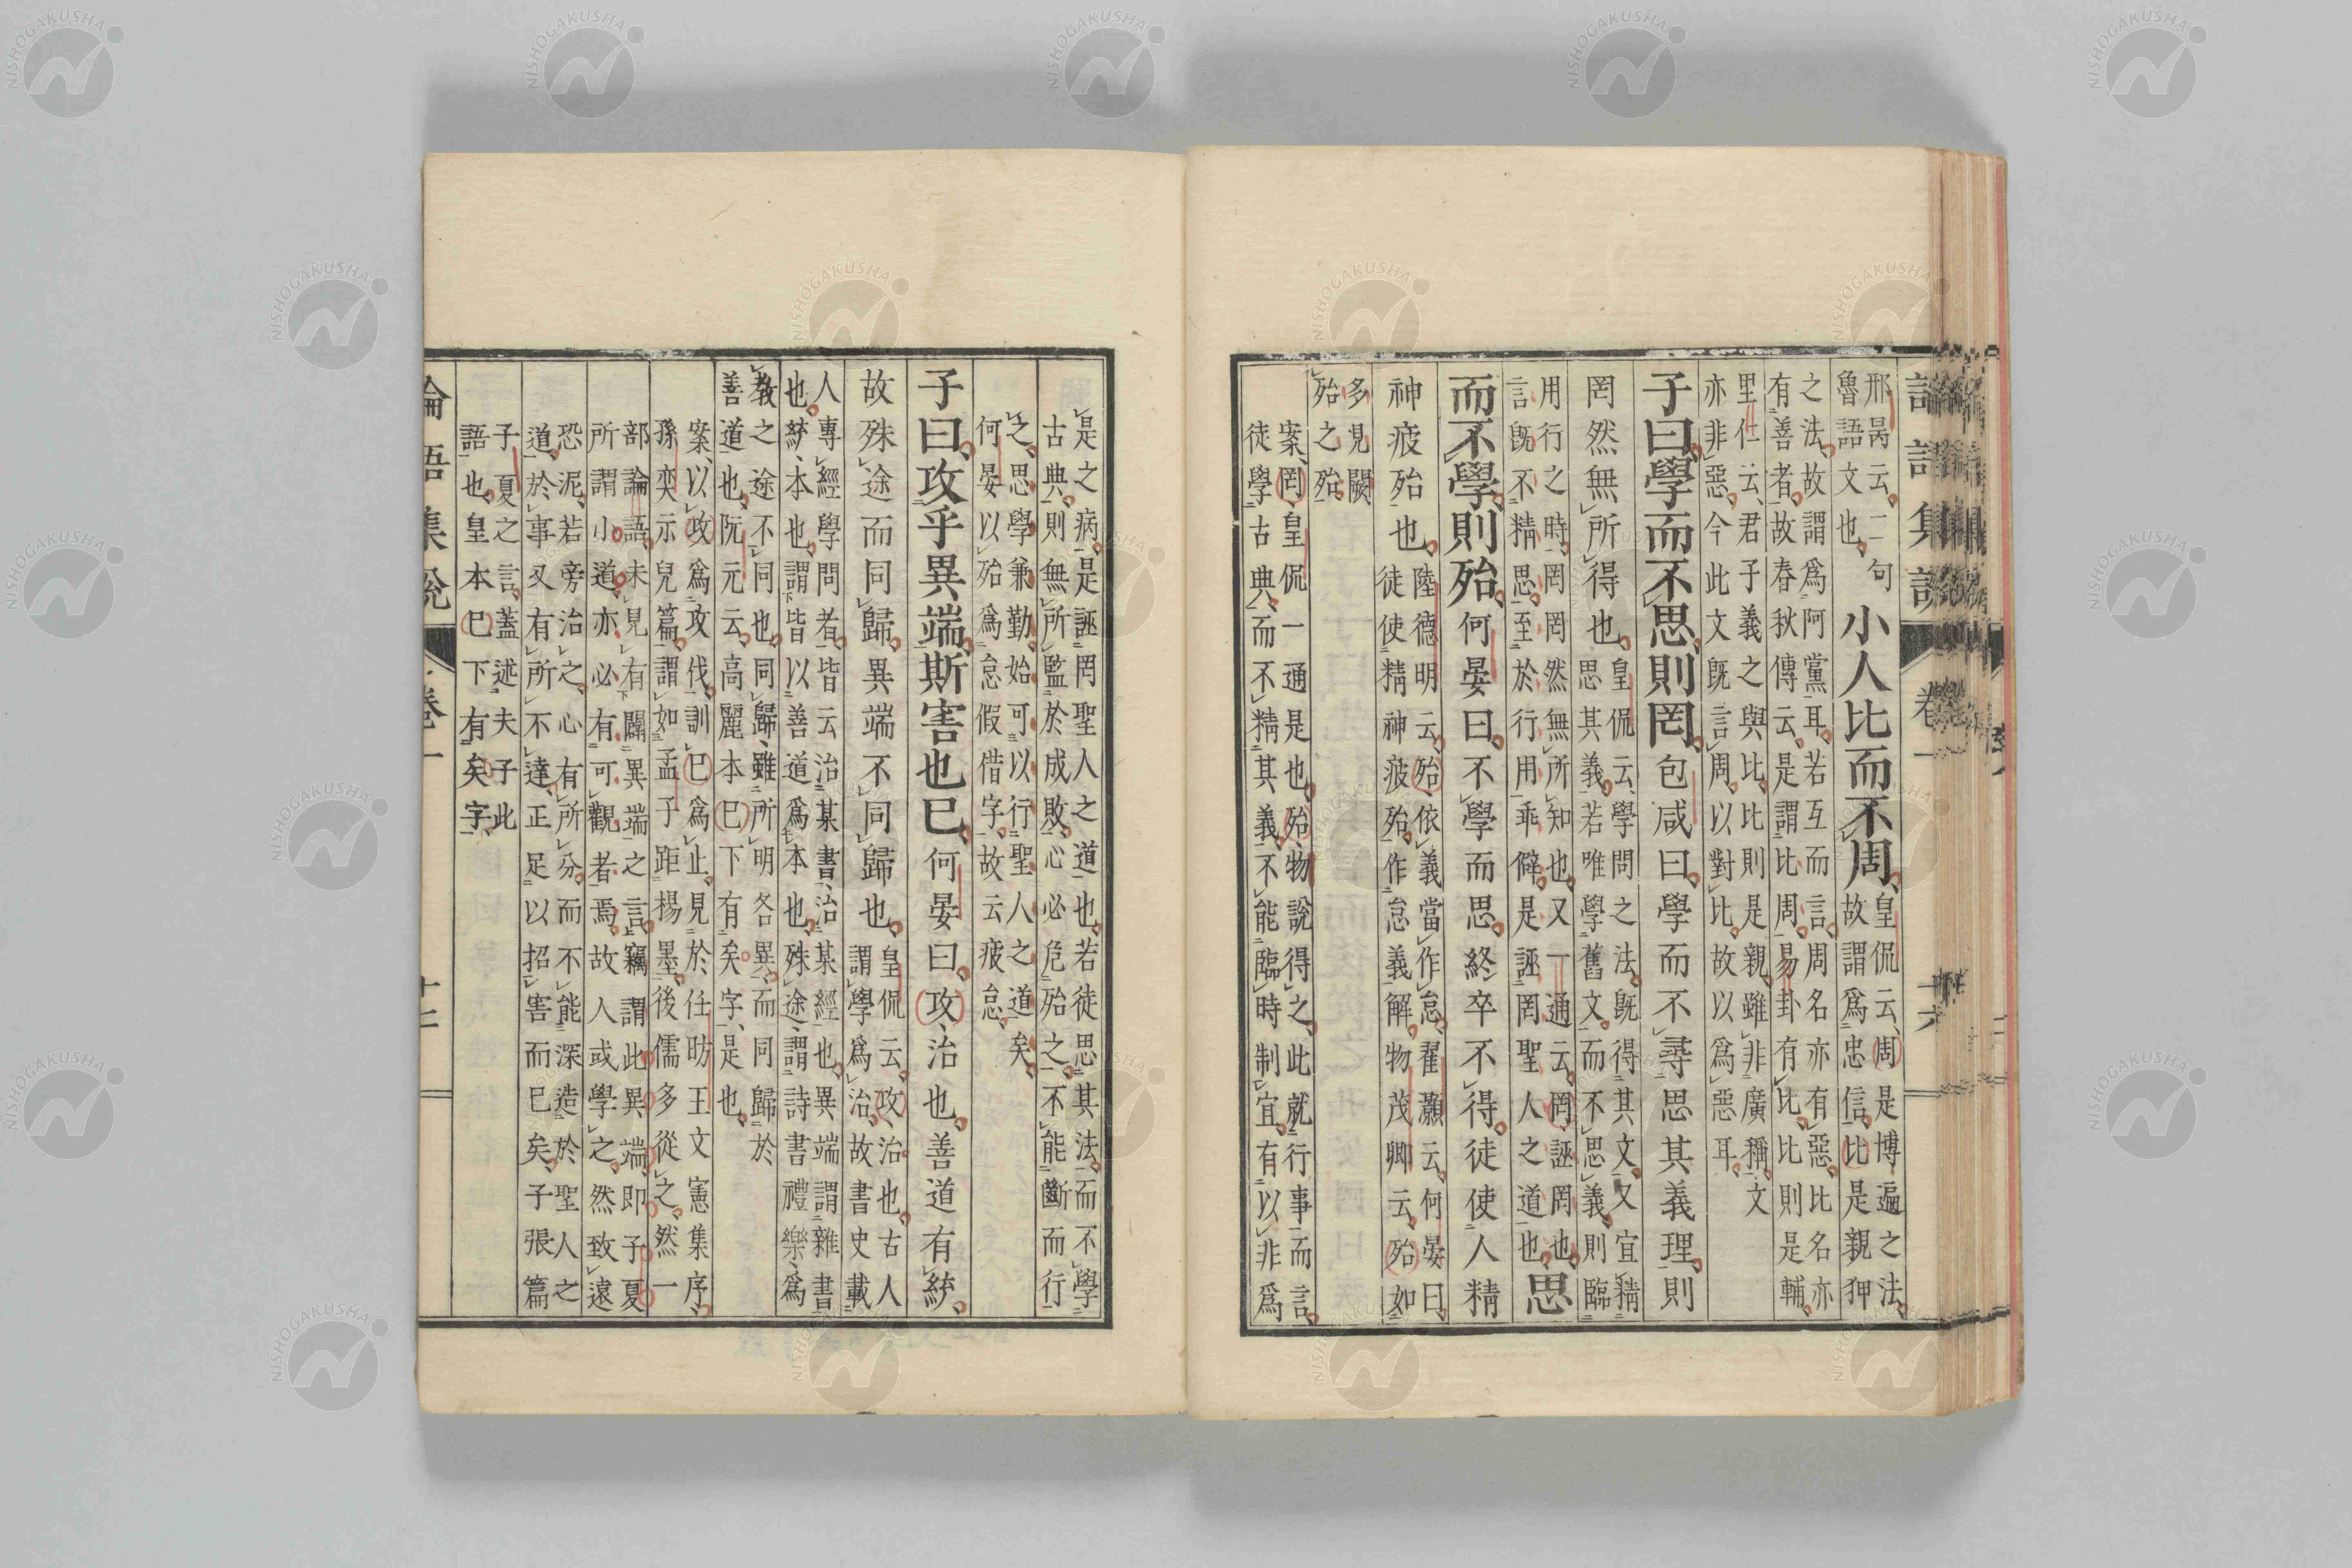 邢昺云、二句
魯語文也、
小人比而不周、
皇侃云、周是博遍之法、
故謂爲忠信、比是親狎
之法、故謂爲阿黨耳、若互而言、周名亦有惡、比名亦
有善者、故春秋傳云、是謂比周、易卦有比、比則是輔
里仁云、君子義之與比、比則是親、雖非廣稱、文
亦非惡、今此文既言周、以對比、故以爲惡耳、
子曰、學而不思、則罔、包咸曰、學而不尋思其義理、則
罔然無所得也、
皇侃云、學問之法、既得其文、又宜精
思其義、若唯學舊文、而不思義、則臨
用行之時、罔罔然無所知也、又一通云、罔、誣罔也、
言既不精思、至於行用乖僻、是誣罔聖人之道也、
思
而不學、則殆、何晏曰、不學而思、終卒不得、徒使人精
神疲殆也、
陸德明云、殆、依義當作怠、翟灝云、何晏曰、
徒使精神疲殆、作怠義解、物茂卿云、殆如
多見闕
殆之殆、
案、罔、皇侃一通是也、殆、物說得之、此就行事而言、
徒學古典、而不精其義、不能臨時制宜、有以非爲
是之病、是誣罔聖人之道也、若徒思其法、而不學
古典、則無所監於成敗、心必危殆之、不能斷而行
之、思學兼勤、始可以行聖人之道矣、
何晏以殆爲怠假借字、故云疲怠、
子曰、攻乎異端、斯害也已、何晏曰、攻、治也、善道有統、
故殊途而同歸、異端不同歸也、
皇侃云、攻、治也、古人
謂學爲治、故書史載
人專經學問者、皆云治某書、治某經也、異端謂雜書
也、統、本也、謂皆以善道爲本也、殊途、謂詩書禮樂、爲
教之途不同也、同歸、雖所明各異、而同歸於
善道也、阮元云、高麗本已下有矣字、是也、
案、以攻爲攻伐、訓已爲止、見於任昉王文憲集序、
孫奕示兒篇、謂如孟子距楊墨、後儒多從之、然一
部論語、未見有闢異端之言、竊謂此異端、即子夏
所謂小道、亦必有可觀者焉、故人或學之、然致遠
恐泥、若旁治之、心有所分、而不能深造於聖人之
道、於事又有所不達、正足以招害而已矣、子張篇
子夏之言、蓋述夫子此
語也、皇本已下有矣字、
論語集說
卷一
十六
論語集說
卷一